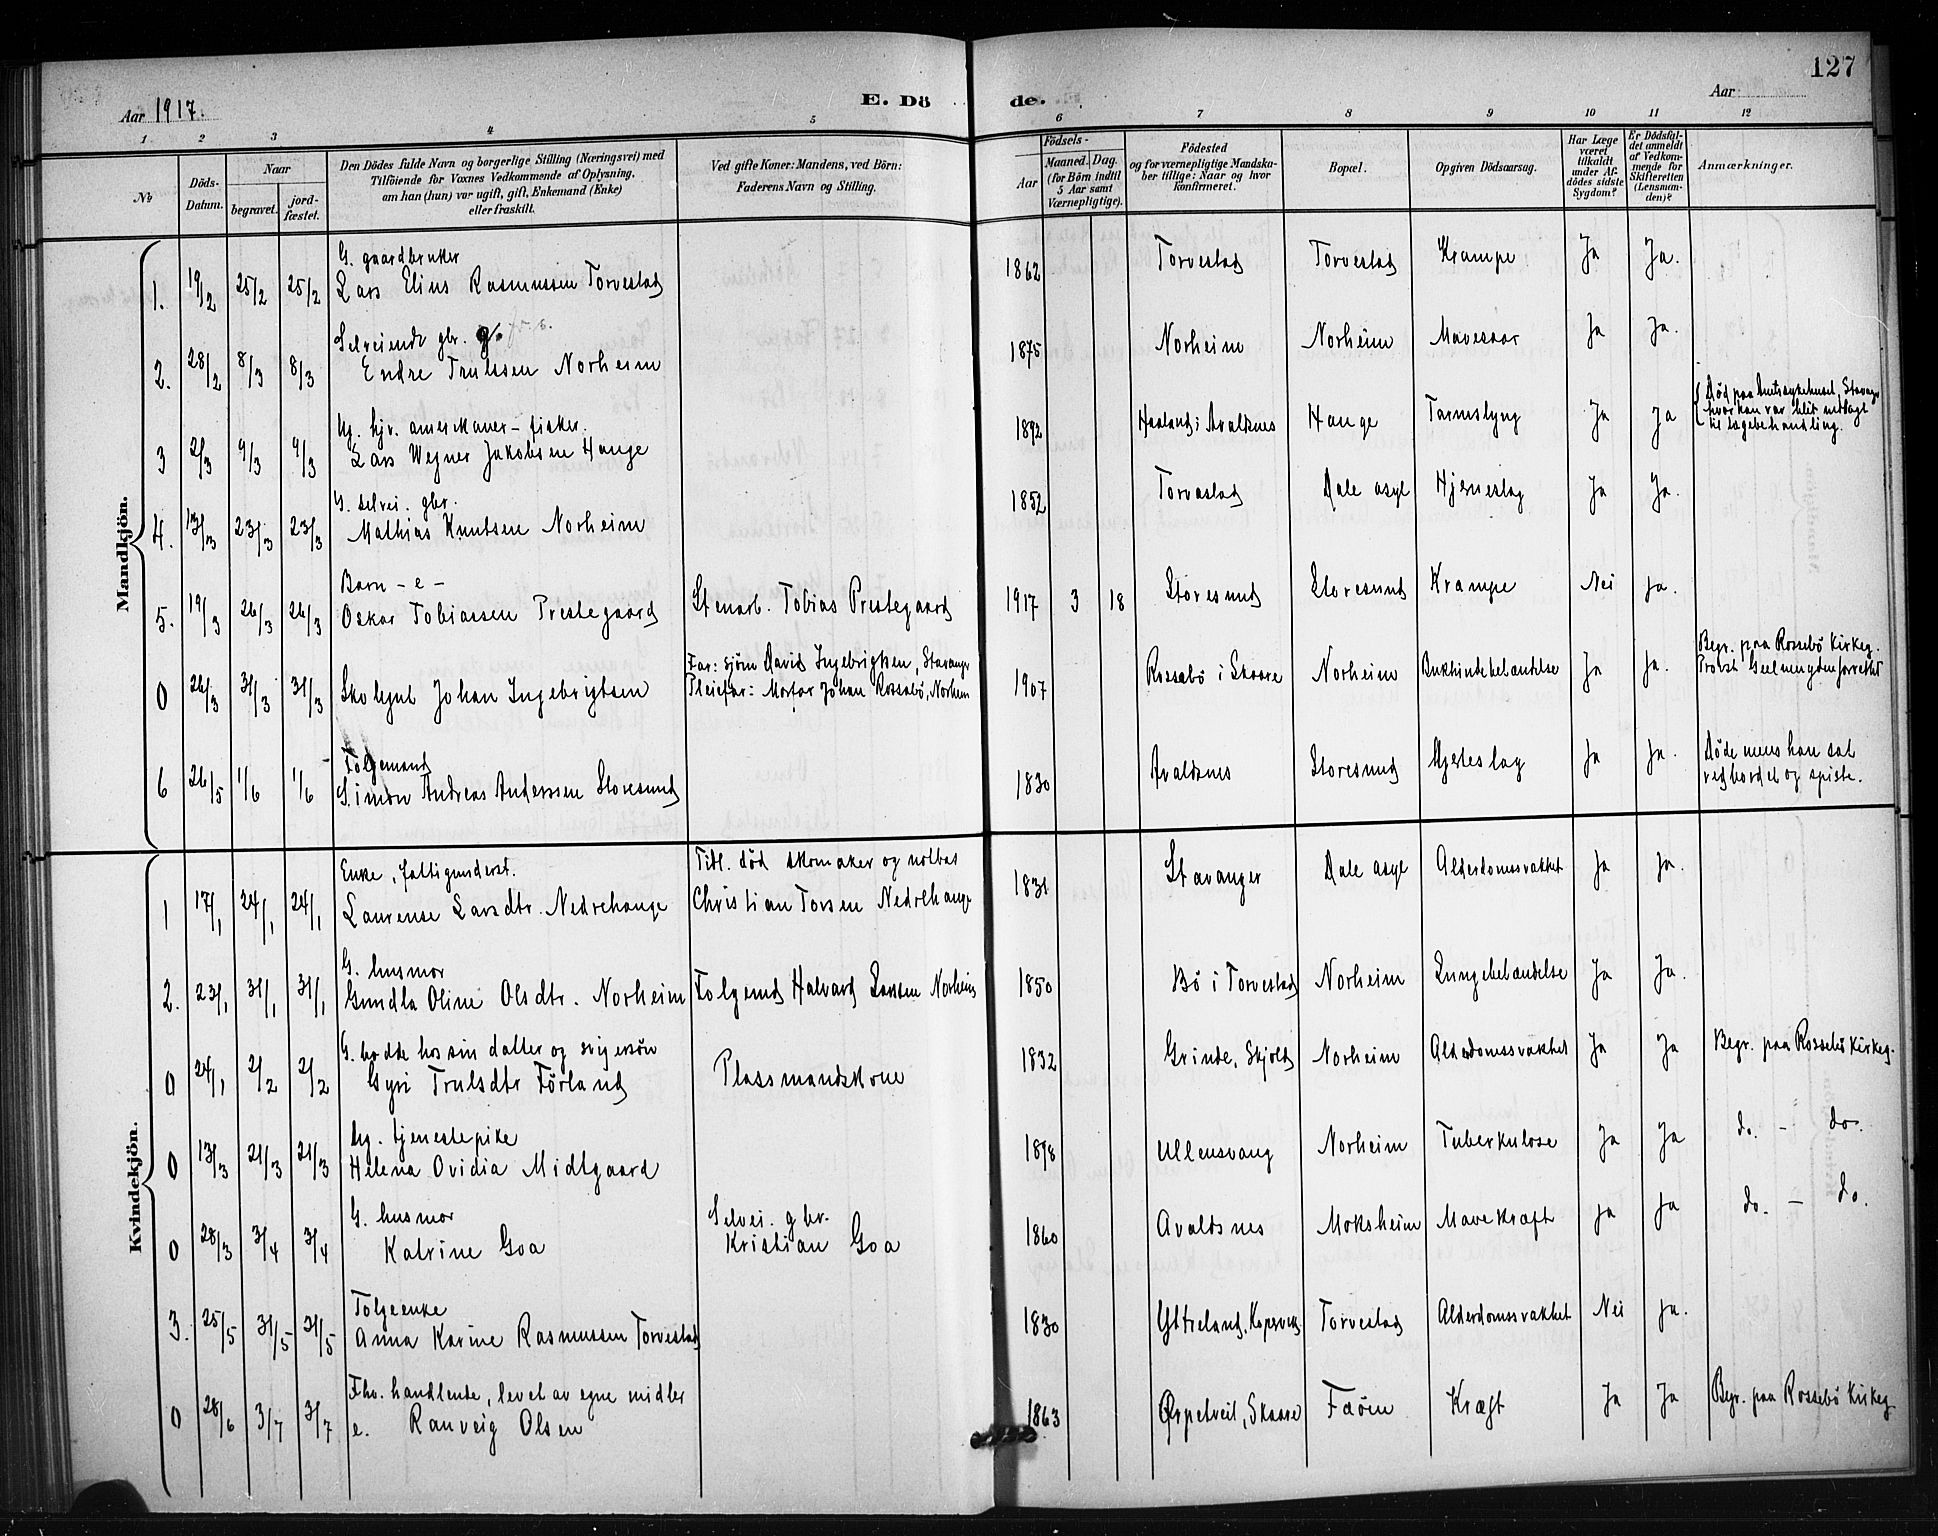 127
Aar 1917.
E. Dö de.
Aar
1 2 3 4 5 6 7 8 9 10 11 12
No
Döds-Datum.
Naar
begravet.
jord-fæstet.
Den Dödes fulde Navn og borgerlige Stilling (Næringsvei) med
Tilföiende for Voxnes Vedkommende af Oplysning,
om han (hun) var ugift, gift, Enkemand (Enke)
eller fraskilt.
Ved gifte Koner: Mandens, ved Börn:
Faderens Navn og Stilling.
Födsels-
Aar
Maaned. Dag.
(for Börn indtil
5 Aar samt
Værnepligtige).
Födested
og for værnepligtige Mandska-
ber tillige: Naar og hvor
konfirmeret.
Bopæl.
Opgiven Dödsaarsag.
Har Læge
været
tilkaldt
under Af-
dödes sidste
Sygdom?
Er Dödsfal-
det anmeldt
af Vedkom-
mende for
Skifteretten
(Lensman-
den)?
Anmærkninger.
Mandkjön.
G. gaardbruker
1. 19/2 25/2 25/2 Lars Elius Rasmussen Torvestad 1862 Torvestad Torvestad Krampe Ja Ja.
Selveiende gbr. g.
2. 28/2 8/3 8/3 Endre Trulssen Norheim 1875 Norheim Norheim Mavesaar Ja Ja.
Ug. hjv. amerikaner - fisker.
3 2/3 9/3 9/3 Lars Wegner Jakobsen Hauge 1892 Haaland i Avaldsnes Hauge Tarmslyng Ja Ja
Död paa Amtssykehuset, Stavanger
hvor han var blit indlagt
til lægebehandling.
G. selvei. gbr.
4. 13/3 23/3 23/3 Mathias Knutsen Norheim 1852 Torvestad Dale asyl Hjerneslag Ja Ja.
Barn - e -
5. 19/3 26/3 26/3 Oskar Tobiassen Prestegaard Stenarb. Tobias Prestegaard 1917 3 18 Storesund Storesund Krampe Nei Ja.
Far: sjöm David Ingebrigtsen, Stavanger
0 26/3 31/3 31/3 Skolegut Johan Ingebrigtsen Pleiefar: Morfar Johan Rossabö, Norheim 1907 Rossabö i Skaare Norheim Bukhindebetændelse Ja Ja.
Begr. paa Rossebö Kirkeg.
Provst Geelmuyden forrettet
Folgemand
6 26/5 1/6 1/6 Simon Andreas Anderssen Storesund 1830 Avaldsnes Storesund Hjerteslag Ja Ja.
Döde mens han sat
ved bordet og spiste.
Kvindekjön.
Enke, fattigunderst. Tidl. död skomaker og notbas
1 17/1 24/1 24/1 Laurense Larsdtr. Nedrehauge Christian Torsen Nedrehauge 1831 Stavanger Dale asyl Alderdomssvakhet Ja Ja.
G. husmor
2. 23/1 31/1 31/1 Gundla Oline Olsdtr. Norheim Folgemd Halvard Larsen Norheim 1850 Bö i Torvestad Norheim Lungebetændelse Ja Ja.
G. bodde hos sin datter og svigersön
0 24/1 2/2 2/2 Gyri Trulsdtr Förland Plassmandskone 1832 Grinde, Skjold Norheim Alderdomssvakhet Ja Ja Begr. paa Rossebö Kirkeg.
Ug. tjenestepike
0 13/3 21/3 21/3 Helena Ovidia Midtgaard 1898 Ullensvang Norheim Tuberkulose Ja Ja do. - do.
G. husmor Selvei. gbr.
0 28/3 3/4 3/4 Katrine Goa Kristian Goa 1860 Avaldsnes Moksheim Mavekræft Ja Ja do. - do.
Folgeenke
3. 25/5 31/5 31/5 Anna Karine Rasmussen Torvestad 1830 Ytreland, Kopervik Torvestad Alderdomssvakhet Nei Ja.
Fhv. handlende, levet av egne midler
0 28/6 3/7 3/7 e. Ranveig Olsen 1863 Eppetveit, Skaare Faöen Kræft Ja Ja Begr. paa Rossebö Kirkeg.